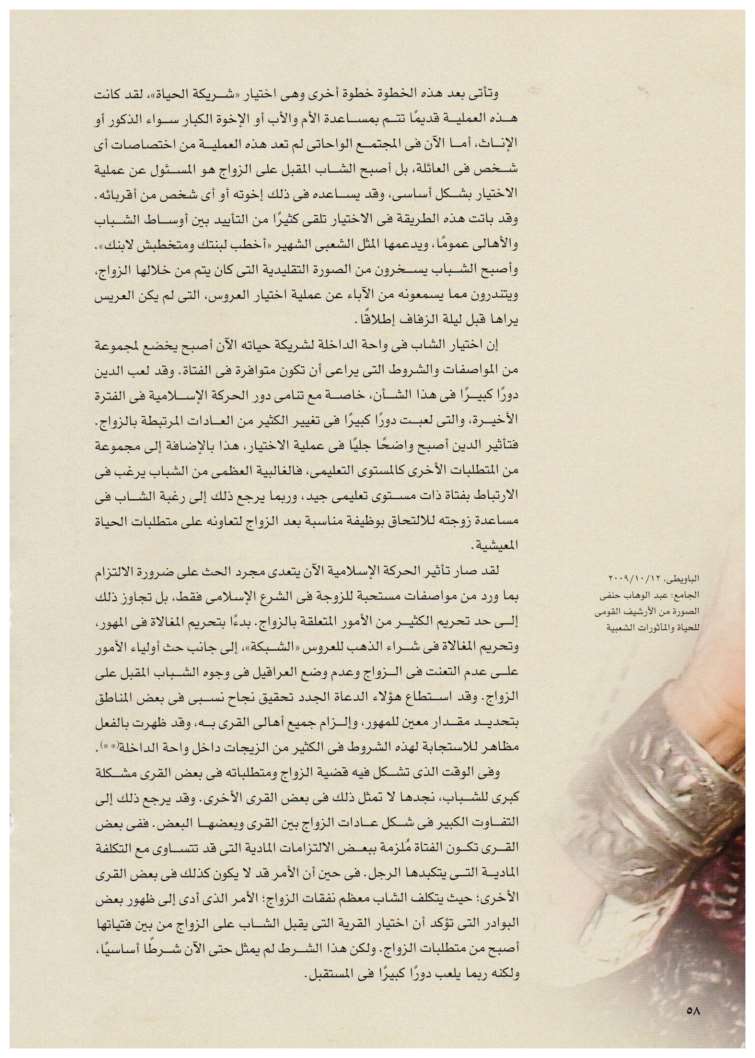 وتأتى بعد هذه الخطوة خطوة أخرى وهى اختيار «شريكة الحياة»، لقد كانت
هذه العملية قديمًا تتم بمساعدة الأم والأب أو الإخوة الكبار سواء الذكور أو
الإناث، أما الآن فى المجتمع الواحاتى لم تعد هذه العملية من اختصاصات أى
شخص فى العائلة، بل أصبح الشاب المقبل على الزواج هو المسئول عن عملية
الاختيار بشكل أساسى، وقد يساعده فى ذلك إخوته أو أى شخص من أقربائه.
وقد باتت هذه الطريقة فى الاختيار تلقى كثيرًا من التأييد بين أوساط الشباب
والأهالى عمومًا، ويدعمها المثل الشعبى الشهير «أخطب لبنتك ومتخطبش لابنك».
وأصبح الشباب يسخرون من الصورة التقليدية التى كان يتم من خلالها الزواج،
ويتندرون مما يسمعونه من الآباء عن عملية اختيار العروس، التى لم يكن العريس
يراها قبل ليلة الزفاف إطلاقًا.
إن اختيار الشاب فى واحة الداخلة لشريكة حياته الآن أصبح يخضع لمجموعة
من المواصفات والشروط التى يراعى أن تكون متوافرة فى الفتاة. وقد لعب الدين
دورًا كبيرًا فى هذا الشأن، خاصة مع تنامى دور الحركة الإسلامية فى الفترة
الأخيرة، والتى لعبت دورًا كبيرًا فى تغيير الكثير من العادات المرتبطة بالزواج.
فتأثير الدين أصبح واضحًا جليًا فى عملية الاختيار، هذا بالإضافة إلى مجموعة
من المتطلبات الأخرى كالمستوى التعليمى، فالغالبية العظمى من الشباب يرغب فى
الارتباط بفتاة ذات مستوى تعليمى جيد، وربما يرجع ذلك إلى رغبة الشاب فى
مساعدة زوجته للالتحاق بوظيفة مناسبة بعد الزواج لتعاونه على متطلبات الحياة
المعيشية.
لقد صار تأثير الحركة الإسلامية الآن يتعدى مجرد الحث على ضرورة الالتزام
بما ورد من مواصفات مستحبة للزوجة فى الشرع الإسلامى فقط، بل تجاوز ذلك
إلى حد تحريم الكثير من الأمور المتعلقة بالزواج. بدءًا بتحريم المغالاة فى المهور،
وتحريم المغالاة فى شراء الذهب للعروس «الشبكة»، إلى جانب حث أولياء الأمور
على عدم التعنت فى الزواج وعدم وضع العراقيل فى وجوه الشباب المقبل على
الزواج. وقد استطاع هؤلاء الدعاة الجدد تحقيق نجاح نسبى فى بعض المناطق
بتحديد مقدار معين للمهور، وإلزام جميع أهالى القرى به، وقد ظهرت بالفعل
مظاهر للاستجابة لهذه الشروط فى الكثير من الزيجات داخل واحة الداخلة(**).
وفى الوقت الذى تشكل فيه قضية الزواج ومتطلباته فى بعض القرى مشكلة
كبرى للشباب، نجدها لا تمثل ذلك فى بعض القرى الأخرى. وقد يرجع ذلك إلى
التفاوت الكبير فى شكل عادات الزواج بين القرى وبعضها البعض. ففى بعض
القرى تكون الفتاة مُلزمة ببعض الالتزامات المادية التى قد تتساوى مع التكلفة
المادية التى يتكبدها الرجل. فى حين أن الأمر قد لا يكون كذلك فى بعض القرى
الأخرى؛ حيث يتكلف الشاب معظم نفقات الزواج؛ الأمر الذى أدى إلى ظهور بعض
البوادر التى تؤكد أن اختيار القرية التى يقبل الشاب على الزواج من بين فتياتها
أصبح من متطلبات الزواج. ولكن هذا الشرط لم يمثل حتى الآن شرطًا أساسيًا،
ولكنه ربما يلعب دورًا كبيرًا فى المستقبل.
الباويطى، ٢٠٠٩/١٠/١٢
الجامع: عبد الوهاب حنفى
الصورة من الأرشيف القومى
للحياة والمأثورات الشعبية
٥٨